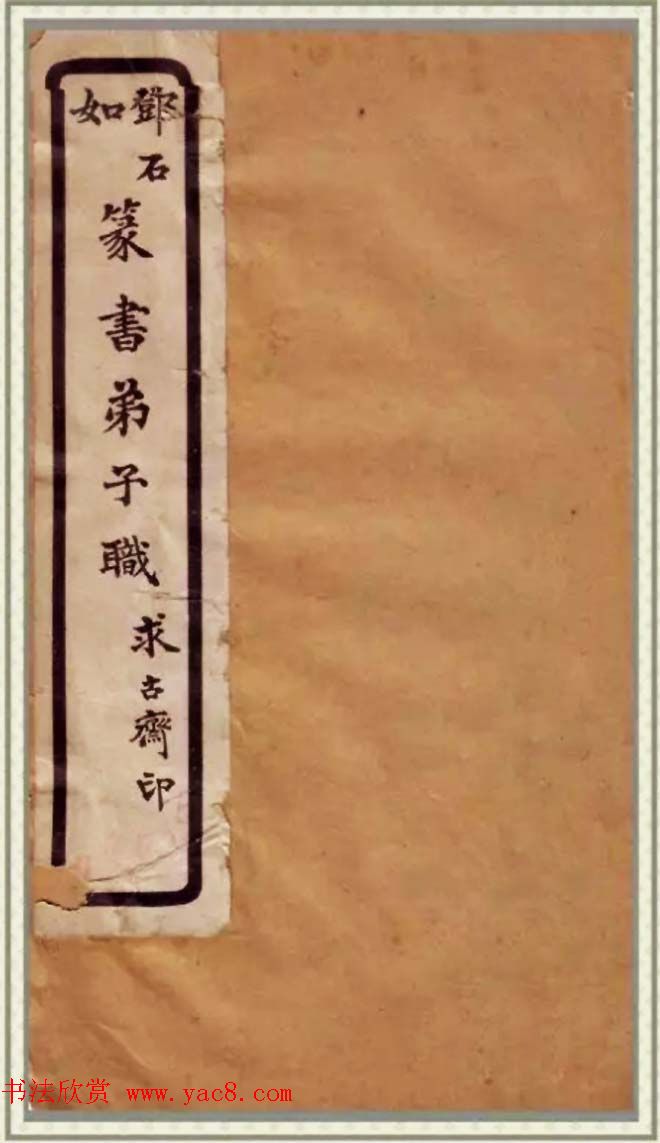 鄧石如
篆書弟子職
求古齋印
书法欣赏 www.yac8.com